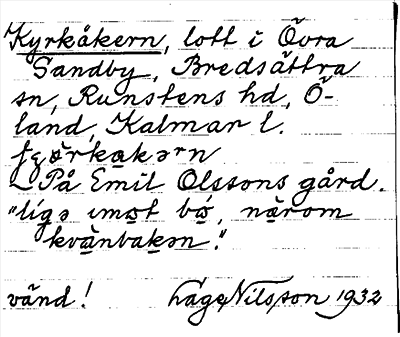 Kyrkåkern, lott i Övra
Sandby, Bredsättra
sn, Runstens hd, Ö-
land, Kalmar l.
På Emil Olssons gård.
"ligə ımot bó, nàrom
kvànbakən."
vänd! Låge Nilsson 1932